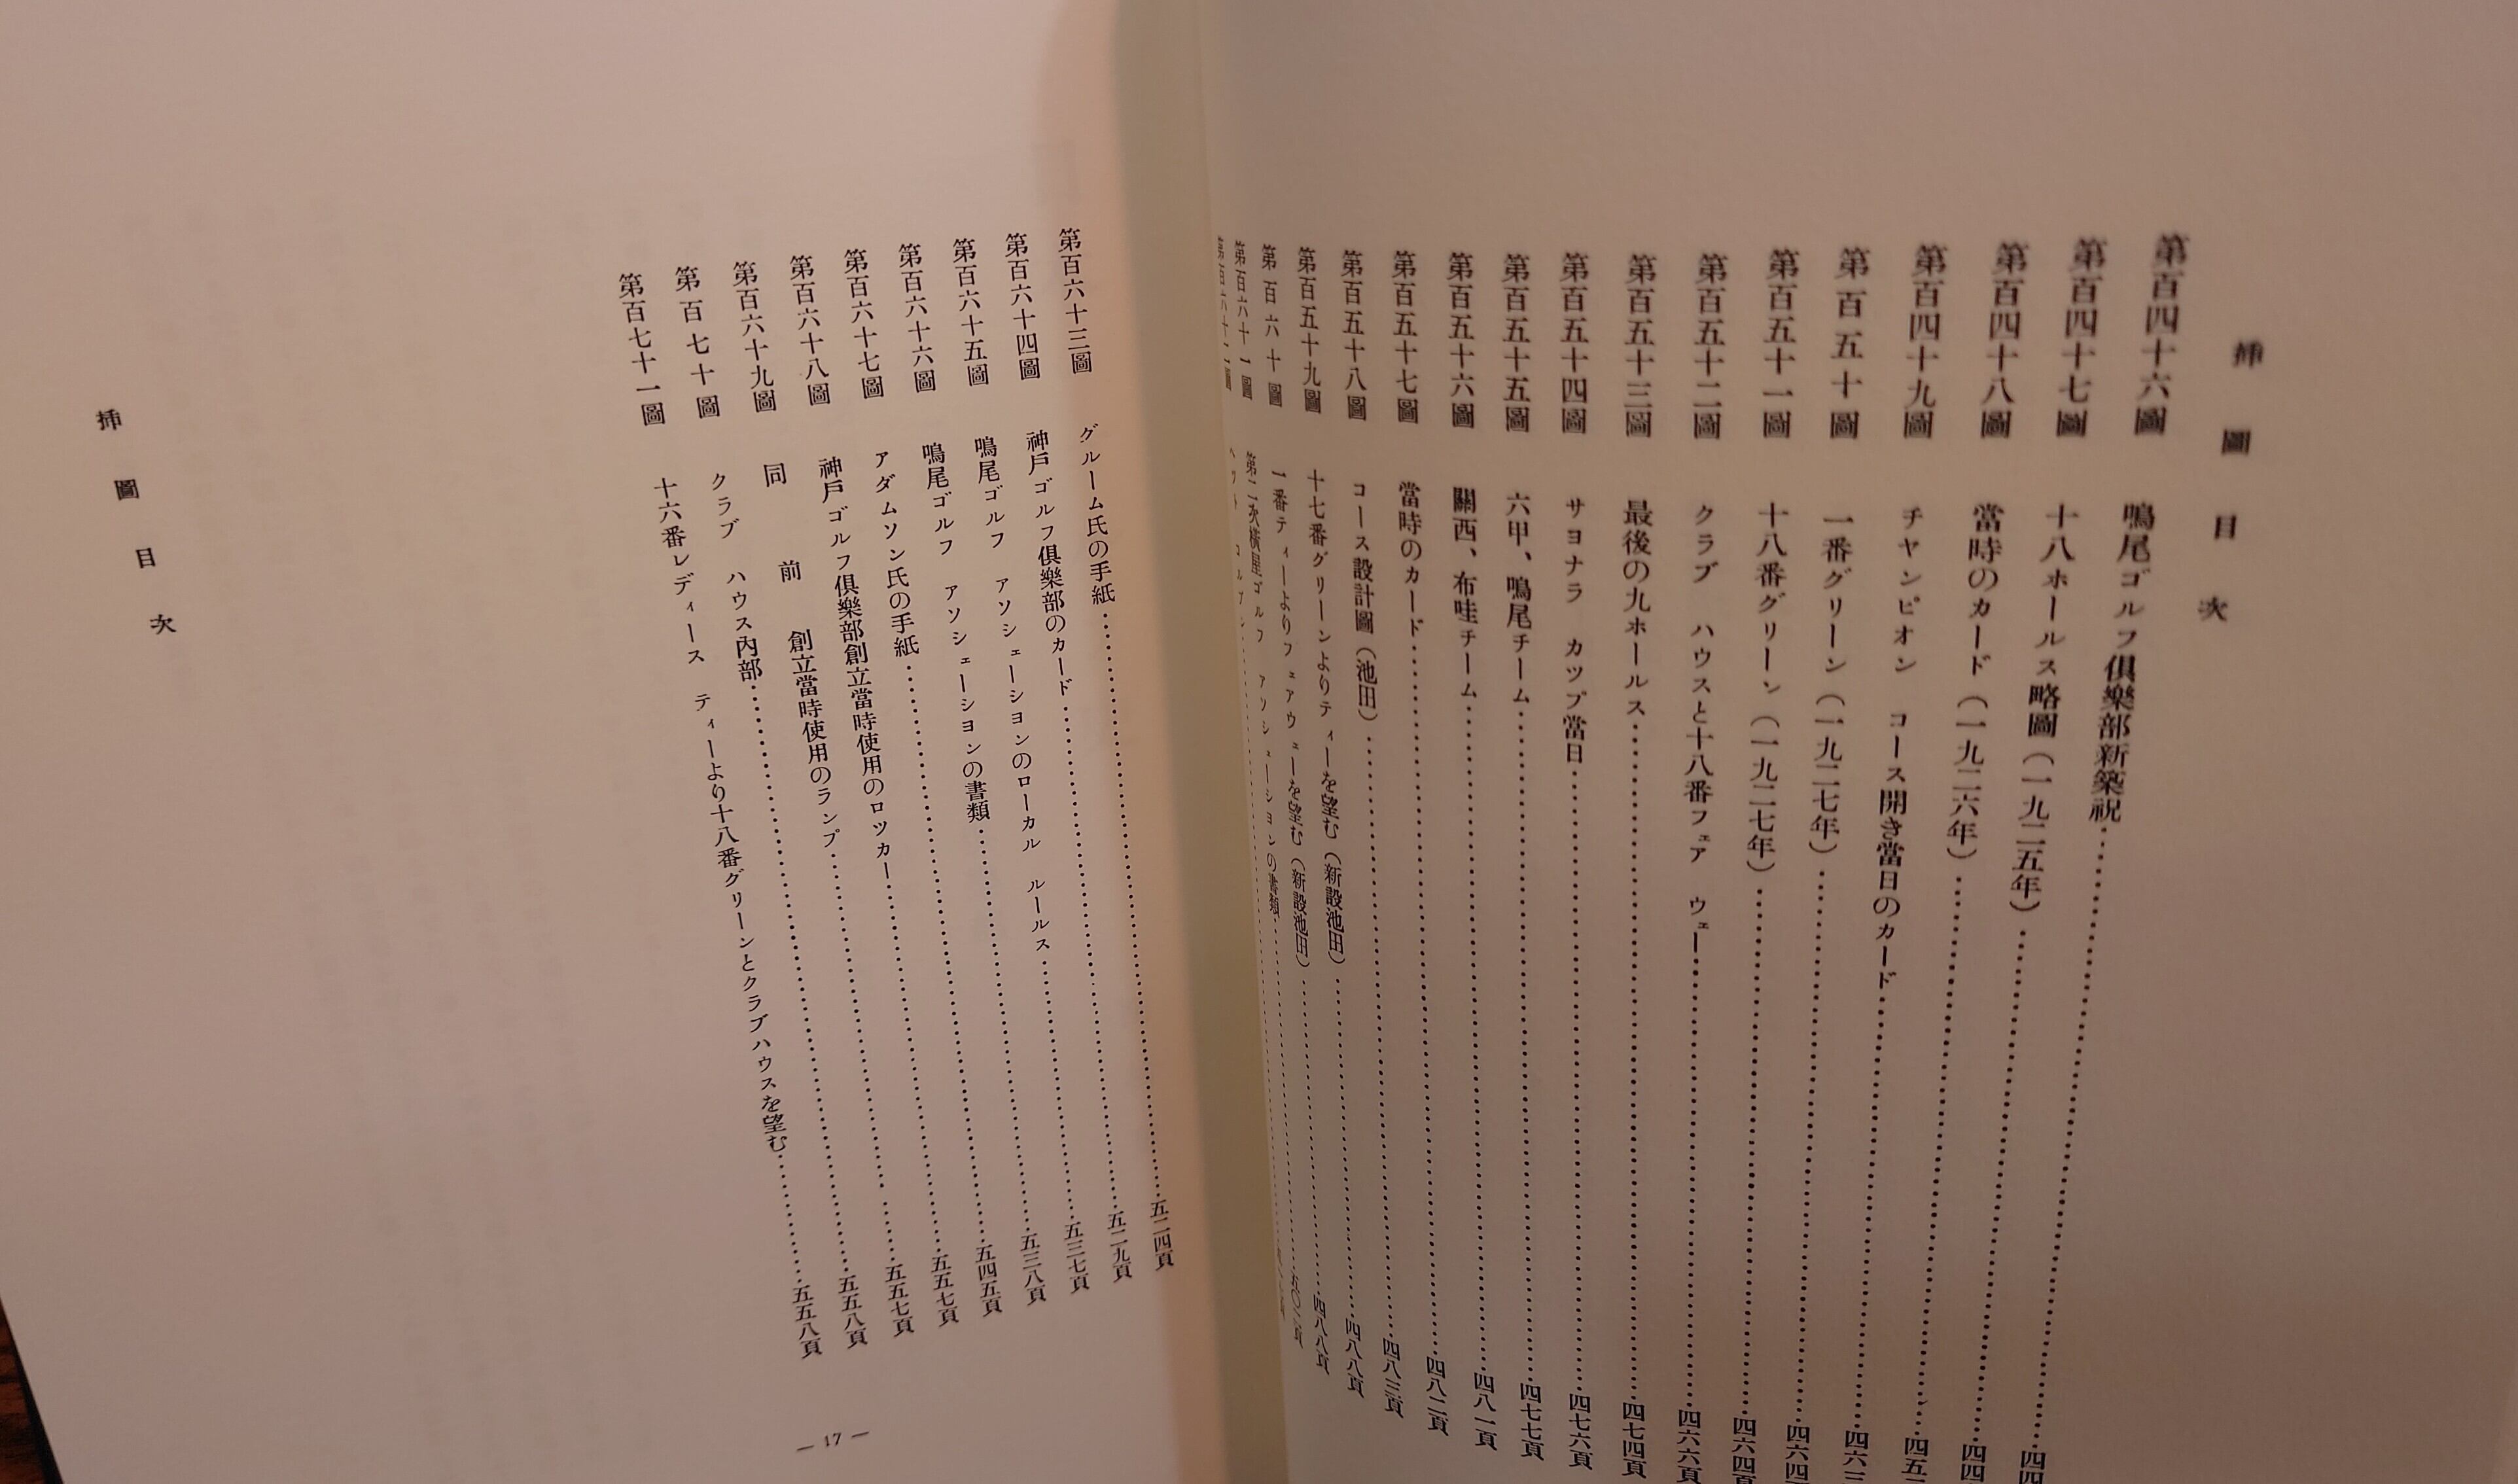 挿圖目次
第百四十六圖 鳴尾ゴルフ倶樂部新築祝
第百四十七圖 十八ホールス略圖(一九二五年)
第百四十八圖 當時のカード(一九二六年)
第百四十九圖 チヤンピオン コース開き當日のカード
第百五十圖 一番グリーン(一九二七年)
第百五十一圖 十八番グリーン(一九二七年)
第百五十二圖 クラブ ハウスと十八番フェア ウェー
第百五十三圖 最後の九ホールス
第百五十四圖 サヨナラ カツプ當日
第百五十五圖 六甲、鳴尾チーム
第百五十六圖 關西、布哇チーム
第百五十七圖 當時のカード
第百五十八圖 コース設計圖(池田)
第百五十九圖 十七番グリーンよりティーを望む(新設池田)
第百六十圖 一番ティーよりフェアウェーを望む(新設池田)
第百六十一圖 第二次横屋ゴルフ アソシェーシヨンの書類
第百六十二圖
第百六十三圖 グルーム氏の手紙……五二四頁
第百六十四圖 神戸ゴルフ倶樂部のカード……五二九頁
第百六十五圖 鳴尾ゴルフ アソシェーシヨンのローカル ルールス……五三七頁
第百六十六圖 鳴尾ゴルフ アソシェーシヨンの書類……五三八頁
第百六十七圖 アダムソン氏の手紙……五四五頁
第百六十八圖 神戸ゴルフ倶樂部創立當時使用のロツカー……五五七頁
第百六十九圖 同前 創立當時使用のランプ……五五七頁
第百七十圖 クラブ ハウス内部……五五八頁
第百七十一圖 十六番レディース ティーより十八番グリーンとクラブハウスを望む……五五八頁
挿圖目次
— 17 —